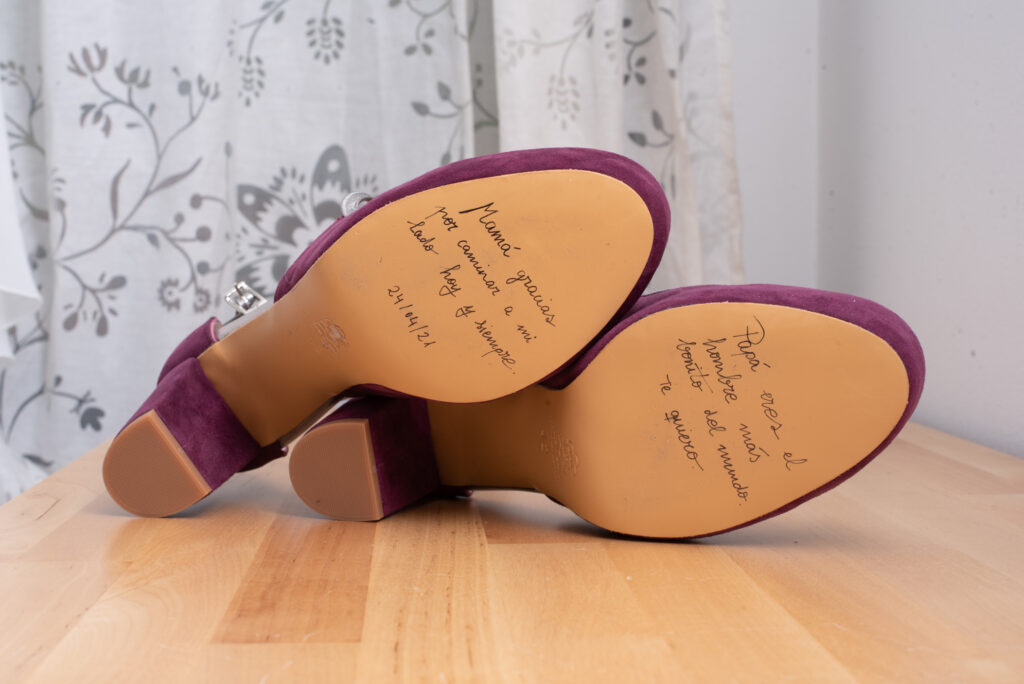 Mamá gracias
por caminar a mi
lado hoy y siempre.
24/04/21
Papá eres el
hombre más
bonito del mundo.
Te quiero.